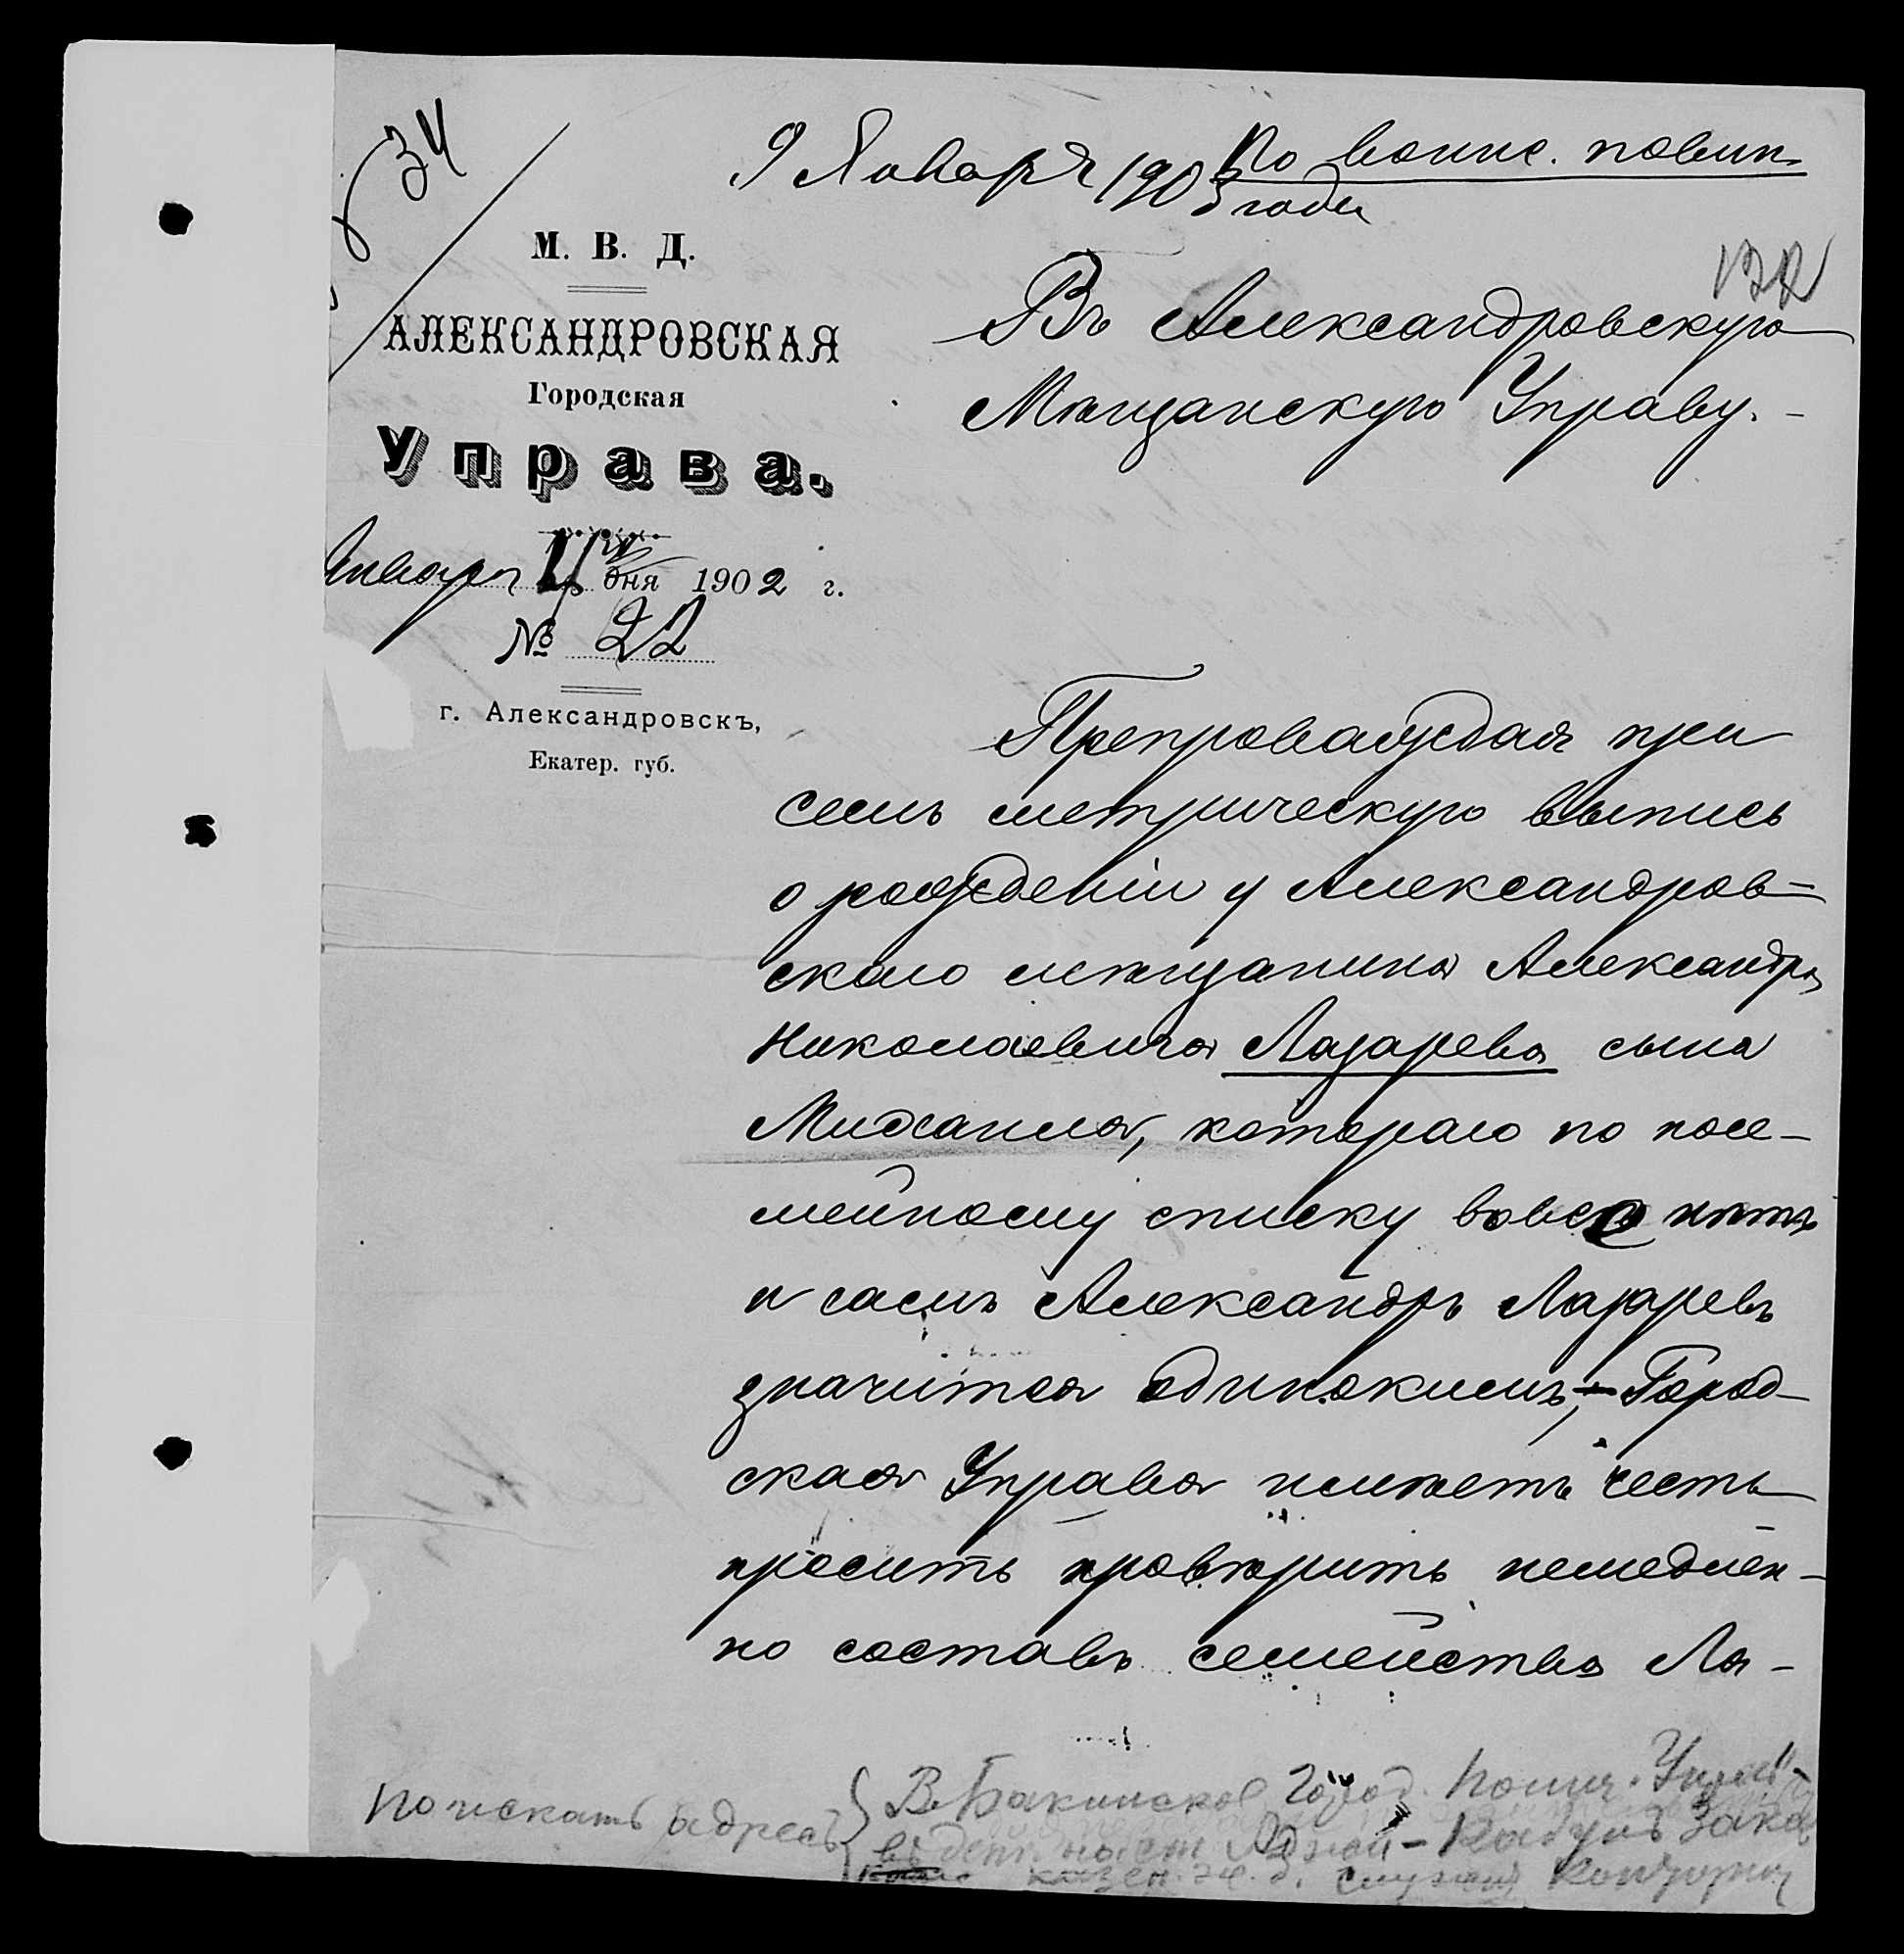 34
9 Января 1903 года
По воинс. повин.
132
М. В. Д.
АЛЕКСАНДРОВСКАЯ
Городская
Управа.
Января дня 1902 г.
№ 22
г. Александровскъ,
Екатер. губ.
Въ Александровскую
Мѣщанскую Управу.-
Препровождая при
семъ метрическую выпись
о рожденіи у Александров-
скаго мѣщанина Александра
Николаевича Лазарева сына
Михаила, котораго по посе-
мейному списку вовсе нѣтъ
и самъ Александръ Лазаревъ
значится одинокимъ,- Город-
ская Управа имѣетъ честь
просить провѣрить немедлен-
но составъ семейства Ла-
Поискать адресъ
В. Бакинское Город. Полиц. Управ
въ деп. на ст Аджи-Кабулъ Закав
казен. ж. д. служащ Кондуктор